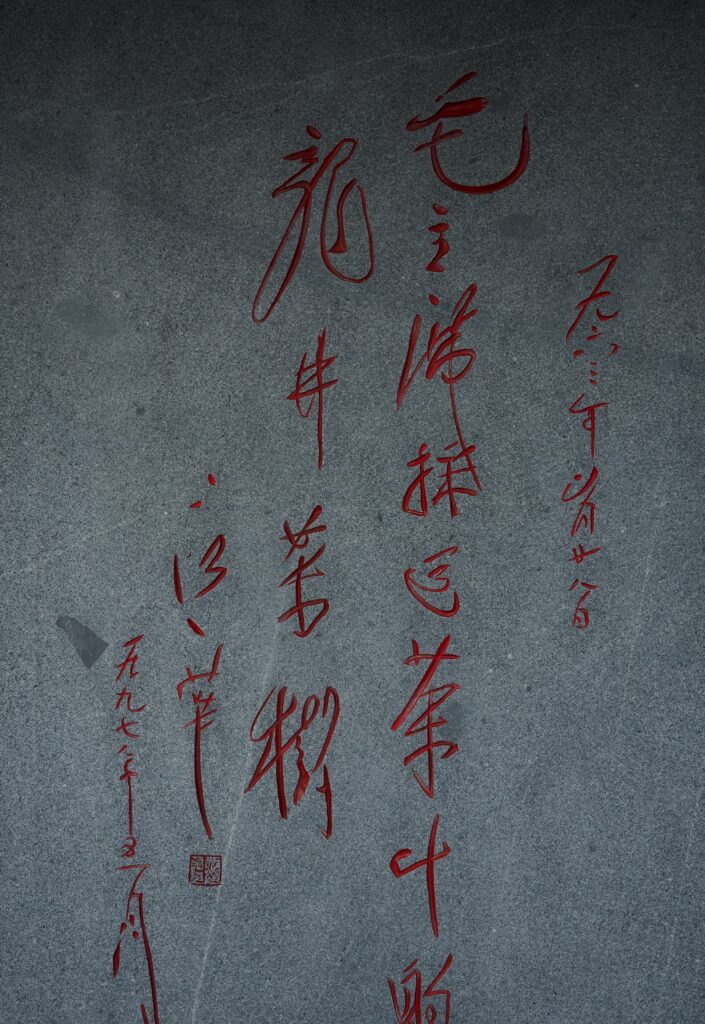 一九六三年四月廿八日
毛主席採过茶叶的
龍井茶樹
江華
一九九七年五